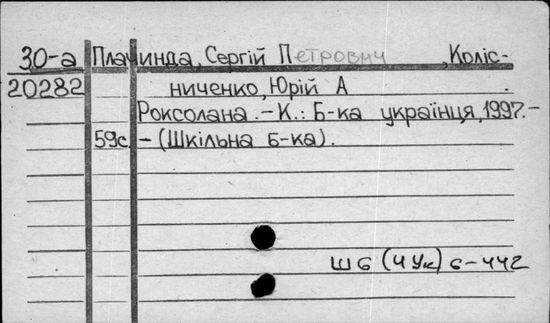 30-а Плачинда, Сергій Петрович, Коліс-
20282 ниченко, Юрій А .
Роксолана. – К.: Б-ка українця, 1997. –
59с. – (Шкільна б-ка).
Ш6 (4Ук) 6-442